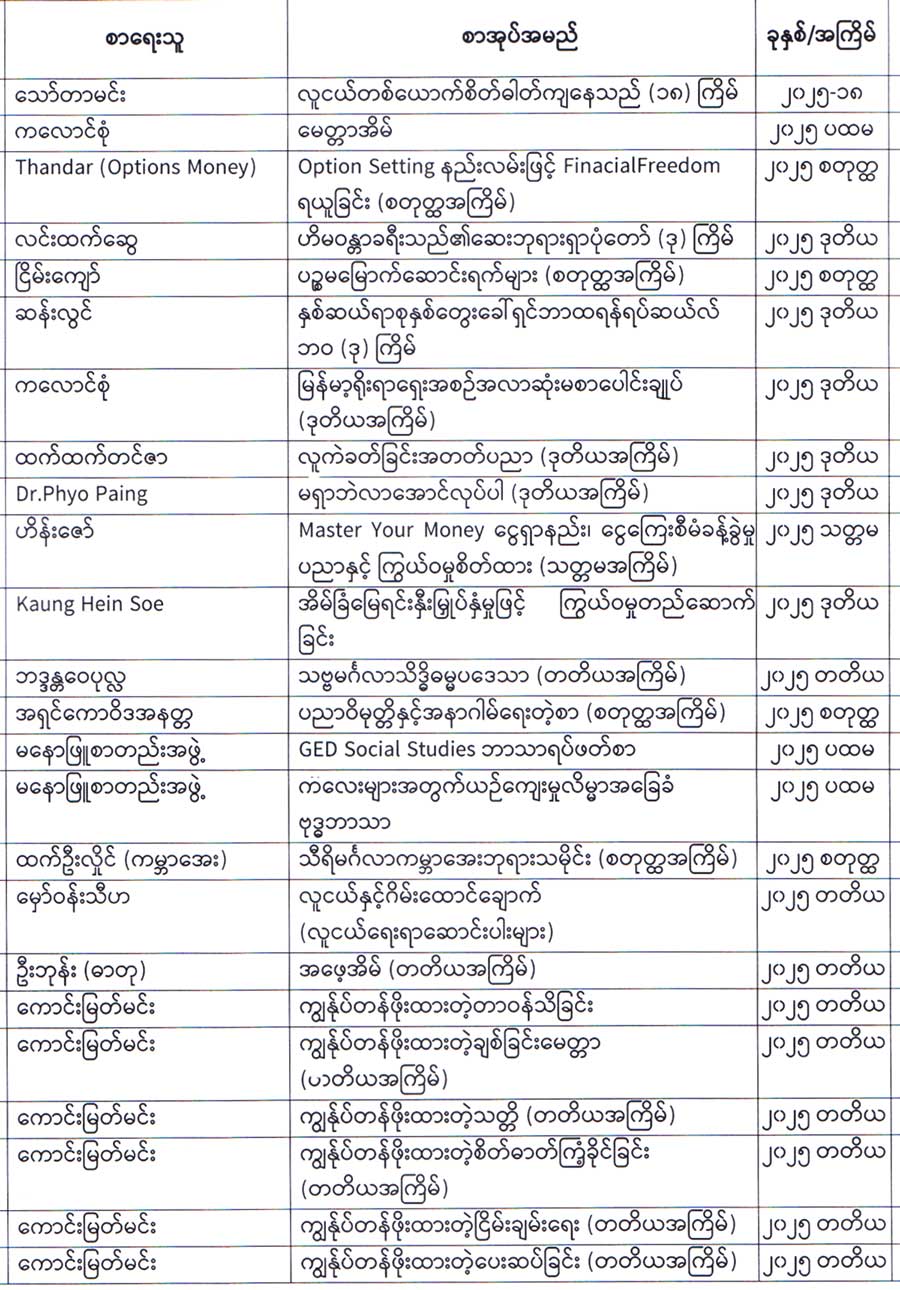 စာရေးသူ စာအုပ်အမည် ခုနှစ်/အကြိမ်
သော်တာမင်း လူငယ်တစ်ယောက်စိတ်ဓါတ်ကျနေသည် (၁၈) ကြိမ် ၂၀၂၅-၁၈
ကလောင်စုံ မေတ္တာအိမ် ၂၀၂၅ ပထမ
Thandar (Options Money) Option Setting နည်းလမ်းဖြင့် FinacialFreedom ၂၀၂၅ စတုတ္ထ
ရယူခြင်း (စတုတ္ထအကြိမ်)
လင်းထက်ဆွေ ဟိမဝန္တာခရီးသည်၏ဆေးဘုရားရှာပုံတော် (ဒု) ကြိမ် ၂၀၂၅ ဒုတိယ
ငြိမ်းကျော် ပဉ္စမမြောက်ဆောင်းရက်များ (စတုတ္ထအကြိမ်) ၂၀၂၅ စတုတ္ထ
ဆန်းလွင် နှစ်ဆယ်ရာစုနှစ်တွေးခေါ်ရှင်ဘာထရန်ရပ်ဆယ်လ် ၂၀၂၅ ဒုတိယ
ဘဝ (ဒု) ကြိမ်
ကလောင်စုံ မြန်မာ့ရိုးရာရှေးအစဉ်အလာဆုံးမစာပေါင်းချုပ် ၂၀၂၅ ဒုတိယ
(ဒုတိယအကြိမ်)
ထက်ထက်တင်ဇာ လူကဲခတ်ခြင်းအတတ်ပညာ (ဒုတိယအကြိမ်) ၂၀၂၅ ဒုတိယ
Dr.Phyo Paing မရှာဘဲလာအောင်လုပ်ပါ (ဒုတိယအကြိမ်) ၂၀၂၅ ဒုတိယ
ဟိန်းဇော် Master Your Money ငွေရှာနည်း၊ ငွေကြေးစီမံခန့်ခွဲမှု ၂၀၂၅ သတ္တမ
ပညာနှင့် ကြွယ်ဝမှုစိတ်ထား (သတ္တမအကြိမ်)
Kaung Hein Soe အိမ်ခြံမြေရင်းနှီးမြှုပ်နှံမှုဖြင့် ကြွယ်ဝမှုတည်ဆောက် ၂၀၂၅ ဒုတိယ
ခြင်း
ဘဒ္ဒန္တဝေပုလ္လ သဗ္ဗမင်္ဂလာသိဒ္ဓိဓမ္မပဒေသာ (တတိယအကြိမ်) ၂၀၂၅ တတိယ
အရှင်ကောဝိဒအနတ္တ ပညာဝိမုတ္တိနှင့်အနာဂါမ်ရေးတဲ့စာ (စတုတ္ထအကြိမ်) ၂၀၂၅ စတုတ္ထ
မနောဖြူစာတည်းအဖွဲ့ GED Social Studies ဘာသာရပ်ဖတ်စာ ၂၀၂၅ ပထမ
မနောဖြူစာတည်းအဖွဲ့ ကလေးများအတွက်ယဉ်ကျေးမှုလိမ္မာအခြေခံ ၂၀၂၅ ပထမ
ဗုဒ္ဓဘာသာ
ထက်ဦးလှိုင် (ကမ္ဘာအေး) သီရိမင်္ဂလာကမ္ဘာအေးဘုရားသမိုင်း (စတုတ္ထအကြိမ်) ၂၀၂၅ စတုတ္ထ
မှော်ဝန်းသီဟ လူငယ်နှင့်ဂိမ်းထောင်ချောက် ၂၀၂၅ တတိယ
(လူငယ်ရေးရာဆောင်းပါးများ)
ဦးဘုန်း (ဓာတု) အဖေ့အိမ် (တတိယအကြိမ်) ၂၀၂၅ တတိယ
ကောင်းမြတ်မင်း ကျွန်ုပ်တန်ဖိုးထားတဲ့တာဝန်သိခြင်း ၂၀၂၅ တတိယ
ကောင်းမြတ်မင်း ကျွန်ုပ်တန်ဖိုးထားတဲ့ချစ်ခြင်းမေတ္တာ ၂၀၂၅ တတိယ
(တတိယအကြိမ်)
ကောင်းမြတ်မင်း ကျွန်ုပ်တန်ဖိုးထားတဲ့သတ္တိ (တတိယအကြိမ်) ၂၀၂၅ တတိယ
ကောင်းမြတ်မင်း ကျွန်ုပ်တန်ဖိုးထားတဲ့စိတ်ဓာတ်ကြံ့ခိုင်ခြင်း ၂၀၂၅ တတိယ
(တတိယအကြိမ်)
ကောင်းမြတ်မင်း ကျွန်ုပ်တန်ဖိုးထားတဲ့ငြိမ်းချမ်းရေး (တတိယအကြိမ်) ၂၀၂၅ တတိယ
ကောင်းမြတ်မင်း ကျွန်ုပ်တန်ဖိုးထားတဲ့ပေးဆပ်ခြင်း (တတိယအကြိမ်) ၂၀၂၅ တတိယ